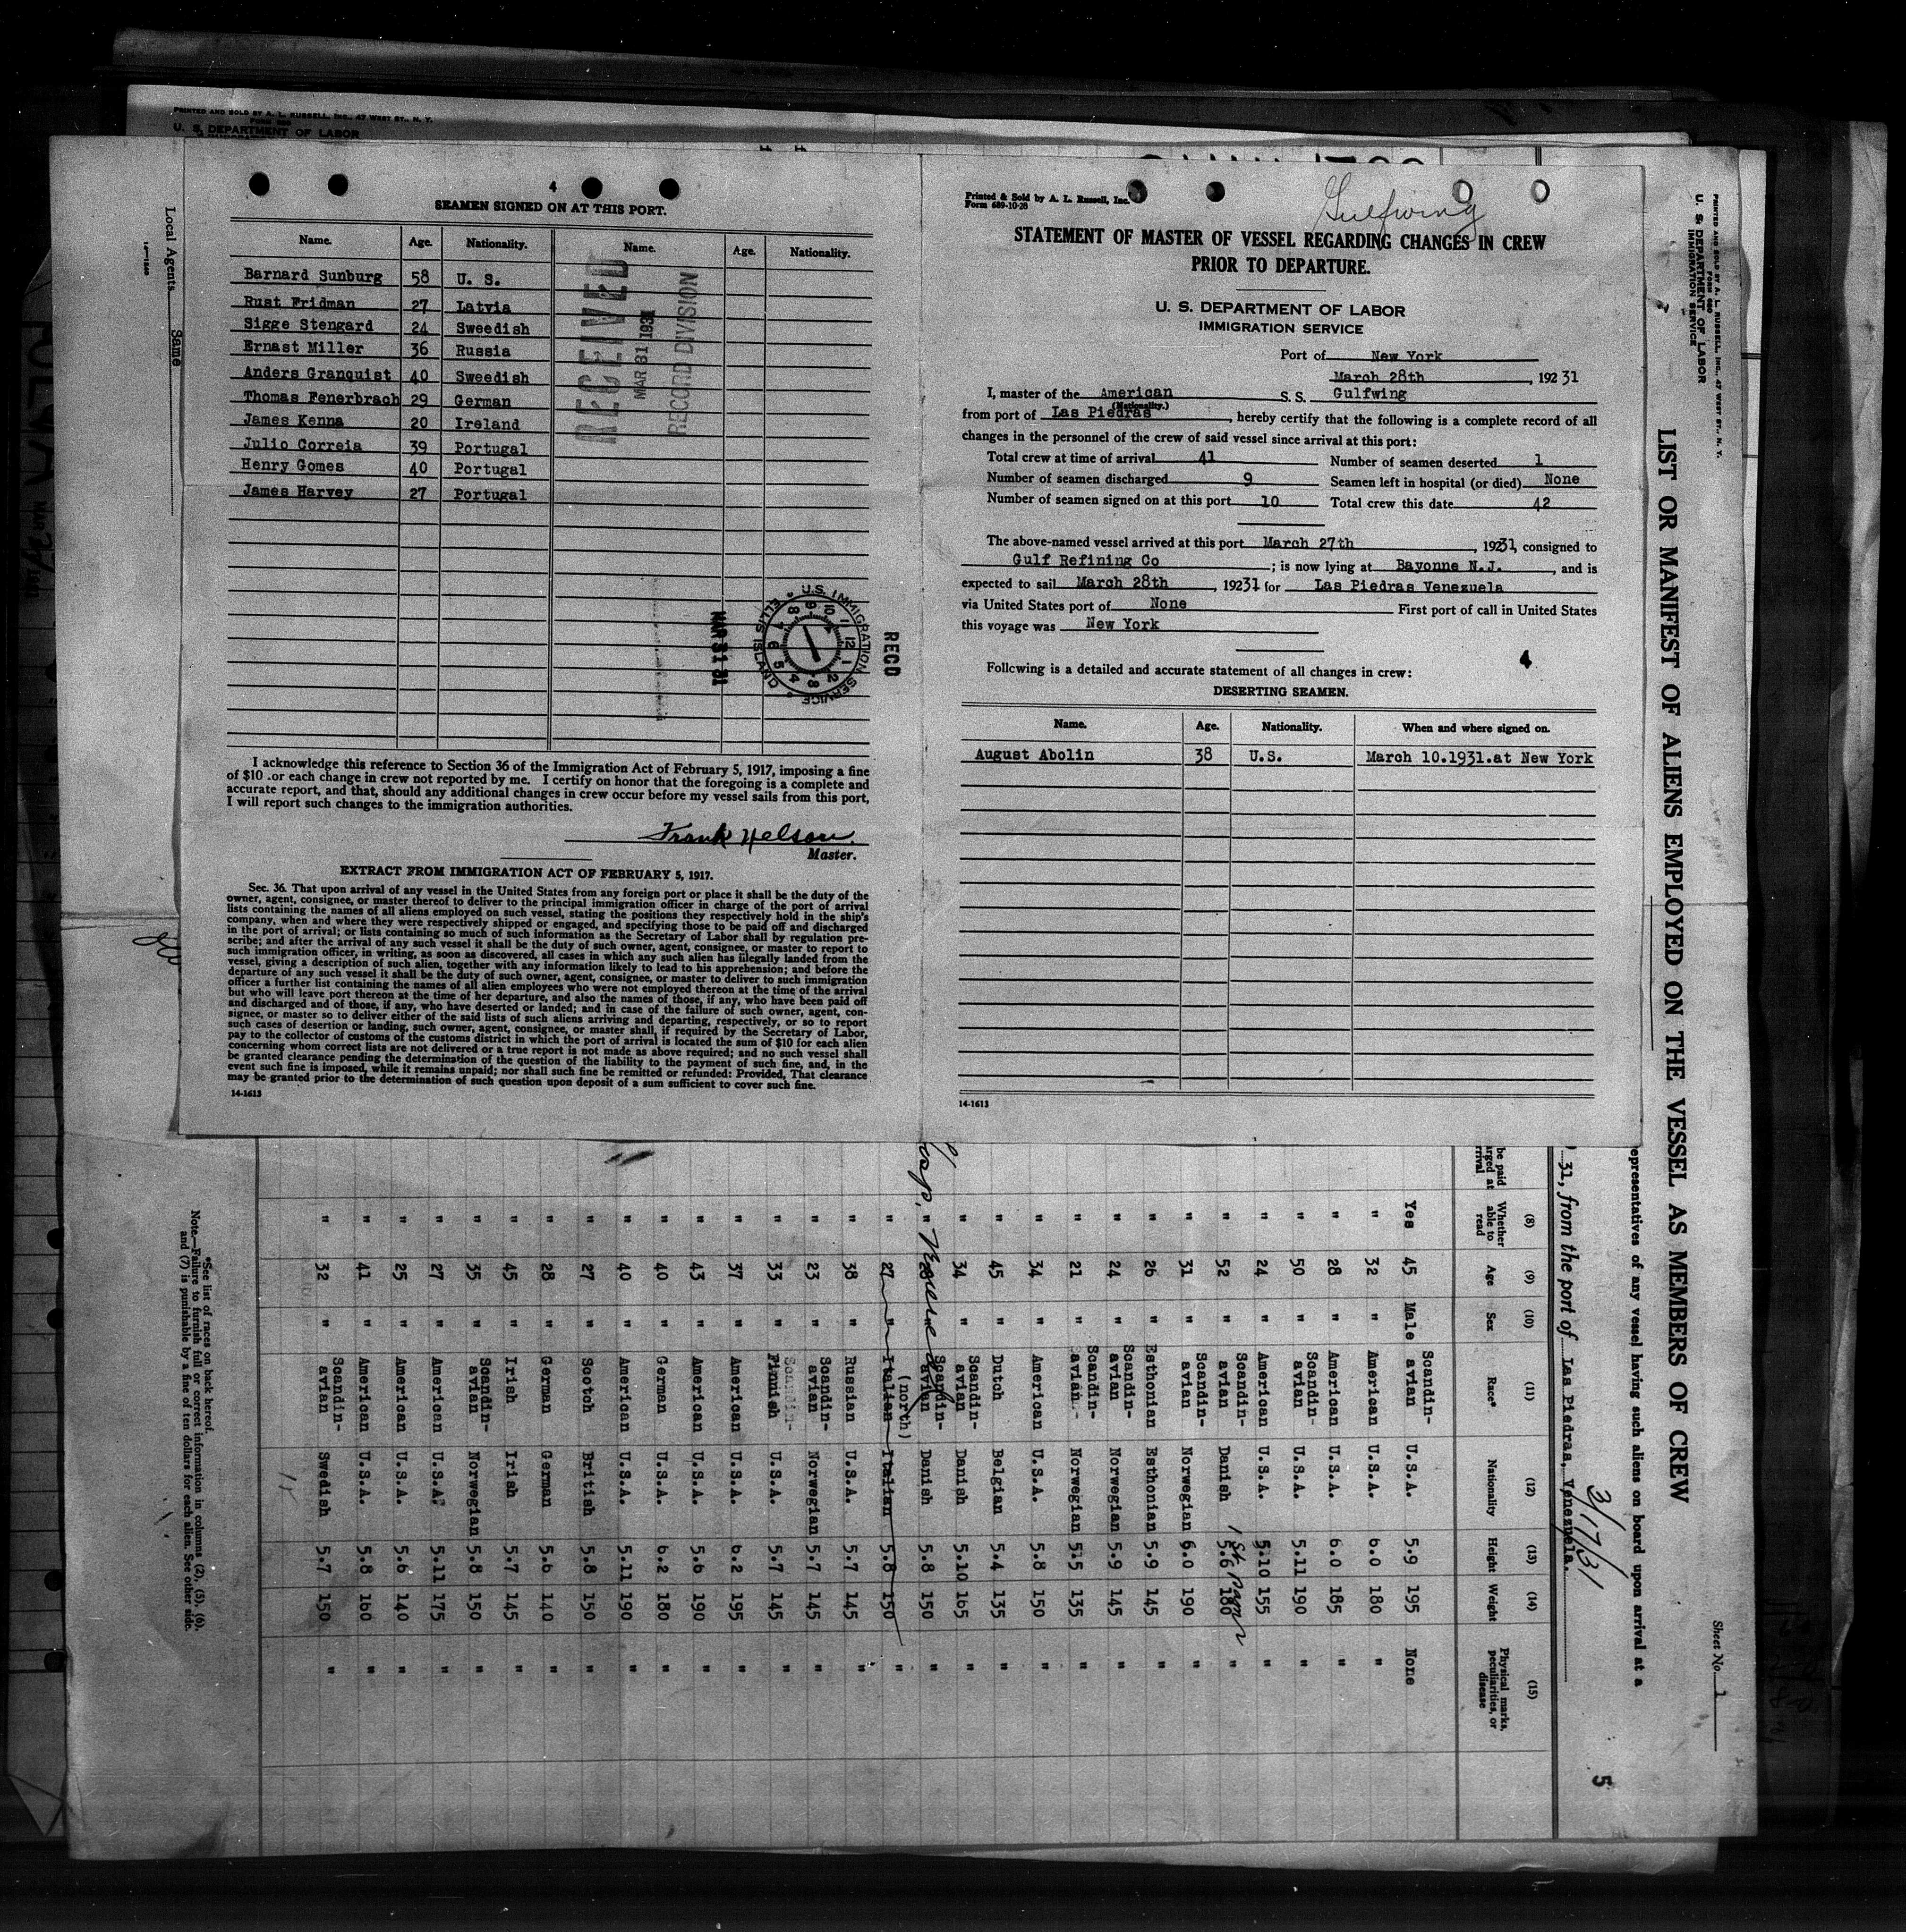 PRINTED AND SOLD BY A. L. RUSSELL, INC., 47 WEST ST., N. Y.
FORM 680
U. S. DEPARTMENT OF LABOR
Local Agents Same
14-1240
4
SEAMEN SIGNED ON AT THIS PORT.
Name. Age. Nationality. Name. Age. Nationality.
Barnard Sunburg 58 U. S.
Rust Fridman 27 Latvia
Sigge Stengard 24 Sweedish
Ernast Miller 36 Russia
Anders Granquist 40 Sweedish
Thomas Fenerbrach 29 German
James Kenna 20 Ireland
Julio Correia 39 Portugal
Henry Gomes 40 Portugal
James Harvey 27 Portugal
RECEIVED
MAR 31 1931
RECORD DIVISION
MAR 31 31
U.S. IMMIGRATION SERVICE
ELLIS ISLAND
RECD
I acknowledge this reference to Section 36 of the Immigration Act of February 5, 1917, imposing a fine
of $10 .or each change in crew not reported by me. I certify on honor that the foregoing is a complete and
accurate report, and that, should any additional changes in crew occur before my vessel sails from this port,
I will report such changes to the immigration authorities.
Frank Nelson.
Master.
EXTRACT FROM IMMIGRATION ACT OF FEBRUARY 5, 1917.
Sec. 36. That upon arrival of any vessel in the United States from any foreign port or place it shall be the duty of the
owner, agent, consignee, or master thereof to deliver to the principal immigration officer in charge of the port of arrival
lists containing the names of all aliens employed on such vessel, stating the positions they respectively hold in the ship's
company, when and where they were respectively shipped or engaged, and specifying those to be paid off and discharged
in the port of arrival; or lists containing so much of such information as the Secretary of Labor shall by regulation pre-
scribe; and after the arrival of any such vessel it shall be the duty of such owner, agent, consignee, or master to report to
such immigration officer, in writing, as soon as discovered, all cases in which any such alien has illegally landed from the
vessel, giving a description of such alien, together with any information likely to lead to his apprehension; and before the
departure of any such vessel it shall be the duty of such owner, agent, consignee, or master to deliver to such immigration
officer a further list containing the names of all alien employees who were not employed thereon at the time of the arrival
but who will leave port thereon at the time of her departure, and also the names of those, if any, who have been paid off
and discharged and of those, if any, who have deserted or landed; and in case of the failure of such owner, agent, con-
signee, or master so to deliver either of the said lists of such aliens arriving and departing, respectively, or so to report
such cases of desertion or landing, such owner, agent, consignee, or master shall, if required by the Secretary of Labor,
pay to the collector of customs of the customs district in which the port of arrival is located the sum of $10 for each alien
concerning whom correct lists are not delivered or a true report is not made as above required; and no such vessel shall
be granted clearance pending the determination of the question of the liability to the payment of such fine, and, in the
event such fine is imposed, while it remains unpaid; nor shall such fine be remitted or refunded: Provided, That clearance
may be granted prior to the determination of such question upon deposit of a sum sufficient to cover such fine.
14-1613
Printed & Sold by A. L. Russell, Inc.
Form 689-10-28
Gulfwing
STATEMENT OF MASTER OF VESSEL REGARDING CHANGES IN CREW
PRIOR TO DEPARTURE.
U. S. DEPARTMENT OF LABOR
IMMIGRATION SERVICE
Port of New York
March 28th, 192 31
I, master of the American S. S. Gulfwing
(Nationality.)
from port of Las Piedras, hereby certify that the following is a complete record of all
changes in the personnel of the crew of said vessel since arrival at this port:
Total crew at time of arrival 41 Number of seamen deserted 1
Number of seamen discharged 9 Seamen left in hospital (or died) None
Number of seamen signed on at this port 10 Total crew this date 42
The above-named vessel arrived at this port March 27th, 19231, consigned to
Gulf Refining Co; is now lying at Bayonne N.J., and is
expected to sail March 28th, 19231 for Las Piedras Venezuela
via United States port of None First port of call in United States
this voyage was New York
4
Following is a detailed and accurate statement of all changes in crew:
DESERTING SEAMEN.
Name. Age. Nationality. When and where signed on.
August Abolin 38 U.S. March 10.1931.at New York
14-1613
PRINTED AND SOLD BY A. L. RUSSELL, INC., 47 WEST ST., N. Y.
FORM 680
U. S. DEPARTMENT OF LABOR
IMMIGRATION SERVICE
Sheet No. 1
LIST OR MANIFEST OF ALIENS EMPLOYED ON THE VESSEL AS MEMBERS OF CREW
epresentatives of any vessel having such aliens on board upon arrival at a
3/17/31
31, from the port of Las Piedras, Venezuela.
5
(8) (9) (10) (11) (12) (13) (14) (15)
be paid arged at rrival Whether able to read Age Sex Race* Nationality Height Weight Physical marks, peculiarities, or disease
Yes 45 Male Scandin-avian U.S.A. 5.9 195 None
" 32 " American U.S.A. 6.0 180 "
" 28 " American U.S.A. 6.0 185
" 50 " Scandin-avian U.S.A. 5.11 190 "
" 24 " American U.S.A. 5.10 155 "
" 52 " Scandin-avian Danish 5.6 180 "
" 31 " Scandin-avian Norwegian 6.0 190
" 26 " Esthonian Esthonian 5.9 145 "
" 24 " Scandin-avian Norwegian 5.9 145 "
" 21 " Scandin-avian Norwegian 5.5 135 "
" 34 " American U.S.A. 5.8 150 "
" 45 " Dutch Belgian 5.4 135 "
" 34 " Scandin-avian Danish 5.10 165 "
" " Scandin-avian Danish 5.8 150 "
" 27 " Italian (north) Italian 5.8 150 "
" 38 " Russian U.S.A. 5.7 145 "
" 23 " Scandin-avian Norwegian 5.7 145 "
" 33 " Finnish U.S.A. 5.7 145 "
" 37 " American U.S.A. 6.2 195 "
" 43 " American U.S.A. 5.6 190 "
" 40 " German U.S.A. 6.2 180 "
" 40 " American U.S.A. 5.11 190 "
" 27 " Scotch British 5.8 150 "
" 28 " German German 5.6 140 "
" 45 " Irish Irish 5.7 145 "
" 35 " Scandin-avian Norwegian 5.8 150 "
" 27 " American U.S.A. 5.11 175 "
" 25 " American U.S.A. 5.6 140 "
" 41 " American U.S.A. 5.8 160 "
" 32 " Scandin-avian Swedish 5.7 150 "
*See list of races on back hereof.
Note.—Failure to furnish full or correct information in columns (2), (5), (6),
and (7) is punishable by a fine of ten dollars for each alien. See other side.